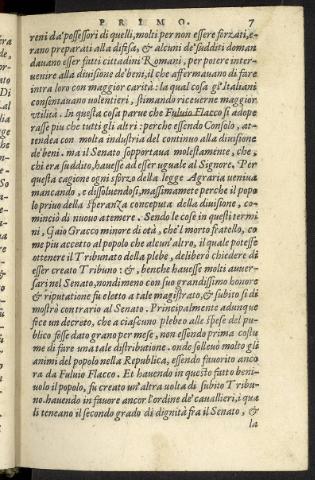 PRIMO. 7
reni da' possessori di quelli, molti per non essere sforzati, e-
rano preparati alla difesa, & alcuni de' sudditi doman
dauano esser fatti cittadini Romani, per potere inter-
uenire alla diuisione de' beni, il che affermauano di fare
intra loro con maggior carità: la qual cosa gl'Italiani
consentauano uolentieri, stimando riceuerne maggior
vtilità. In questa cosa parue che Fuluio Flacco si adope
rasse piu che tutti gli altri: perche essendo Consolo, at-
tendea con molta industria del continuo alla diuisione
de' beni. ma il Senato sopportaua molestamente, che,
chi era suddito, hauesse ad esser uguale al Signore. Per
questa cagione ogni sforzo della legge Agraria ueniua
mancando, e dissoluendosi, massimamẽte perche il popo
lo priuo della speranza conceputa della diuisione, co-
minciò di nuouo a temere. Sendo le cose in questi termi
ni, Gaio Gracco minore di età, che'l morto fratello, co
me piu accetto al popolo che alcun'altro, il quale potesse
ottenere il Tribunato della plebe, deliberò chiedere di
esser creato Tribuno: &, benche hauesse molti auuer-
sari nel Senato, nondimeno con suo grandissimo honore
& riputatione fu eletto a tale magistrato, & subito si di
mostrò contrario al Senato. Principalmente adunque
fice un decreto, che a ciascuno plebeo alle spese del pu-
blico fosse dato grano per mese, non essendo prima costu
me di fare una tale distributione. onde solleuò molto gli
animi del popolo nella Republica, essendo fauorito anco
ra da Fuluio Flacco. Et hauendo in questo fatto beni-
uolo il popolo, fu creato un'altra uolta di subito Tribu-
no. hauendo in fauore ancor l'ordine de' cauallieri, i qua
li teneano il secondo grado di dignità fra il Senato, &
la